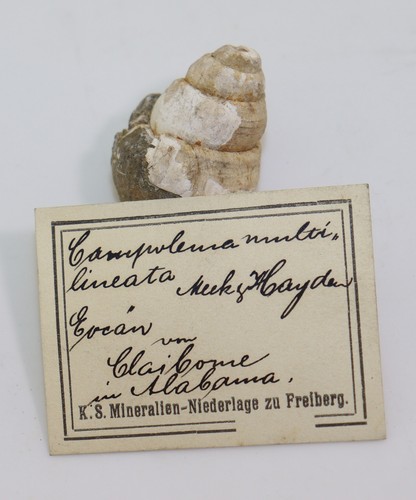 Campolema multi„
lineata Meek & Hayden
Eocän
von
Claiborne
in Alabama.
K.S. Mineralien-Niederlage zu Freiberg.